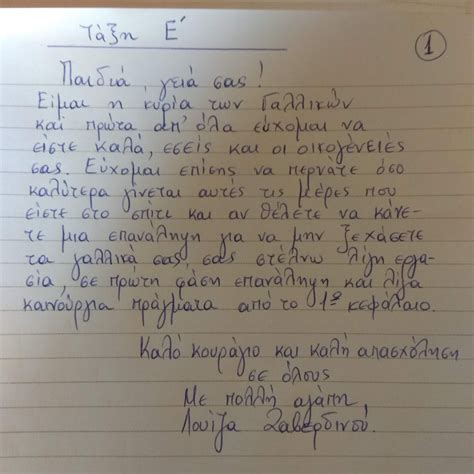 Τάξη Ε΄
1
Παιδιά, γειά σας!
Είμαι η κυρία των Γαλλικών
και πρώτα απ' όλα εύχομαι να
είστε καλά, εσείς και οι οικογένειές
σας. Εύχομαι επίσης να περνάτε όσο
καλύτερα γίνεται αυτές τις μέρες που
είστε στο σπίτι και αν θέλετε να κάνε-
τε μια επανάληψη για να μην ξεχάσετε
τα γαλλικά σας, σας στέλνω λίγη εργα-
σία, σε πρώτη φάση επανάληψη και λίγα
καινούργια πράγματα από το 1º κεφάλαιο.
Καλό κουράγιο και καλή απασχόληση
σε όλους
Με πολλή αγάπη,
Λουίζα Ζαβερδινού.